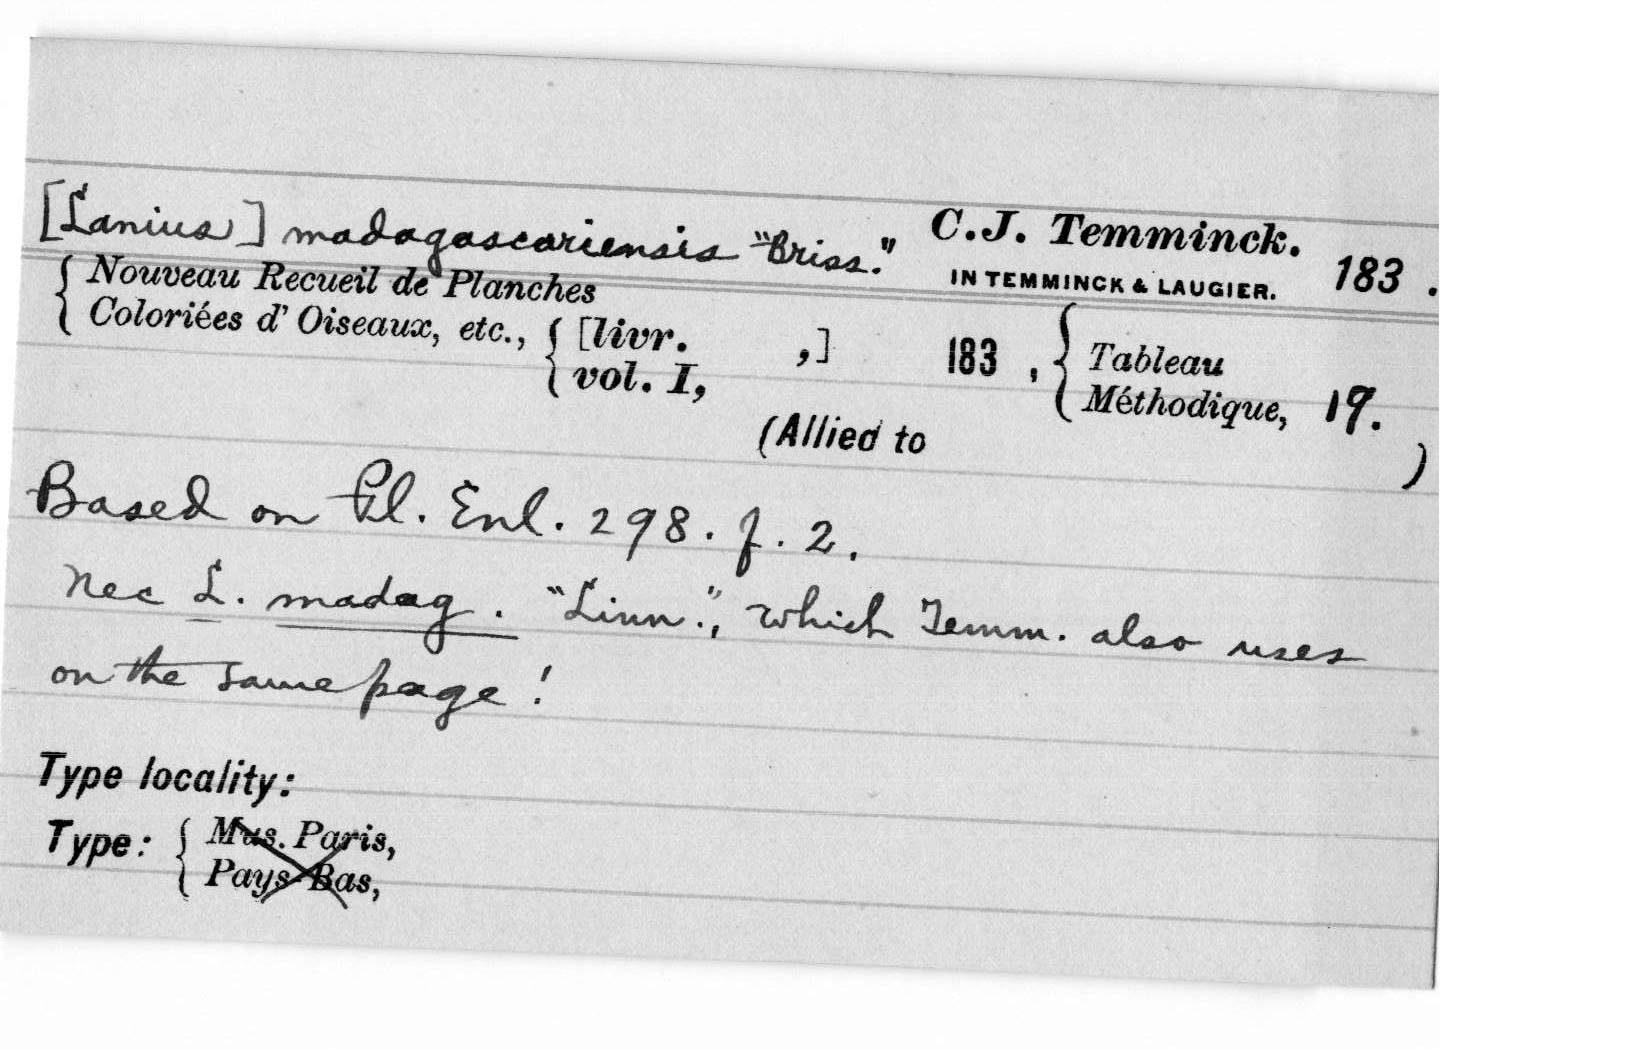 [Lanius] madagascariensis "Briss." C.J. Temminck.
IN TEMMINCK & LAUGIER. 183 .
Nouveau Recueil de Planches
Coloriées d' Oiseaux, etc., [livr. ,] 183 , Tableau
vol. I, Méthodique, 19.
(Allied to )
Based on Pl. Enl. 298. f. 2.
nec L. madag. "Linn.", which Temm. also uses
on the same page!
Type locality:
Type: Mus. Paris,
Pays-Bas,